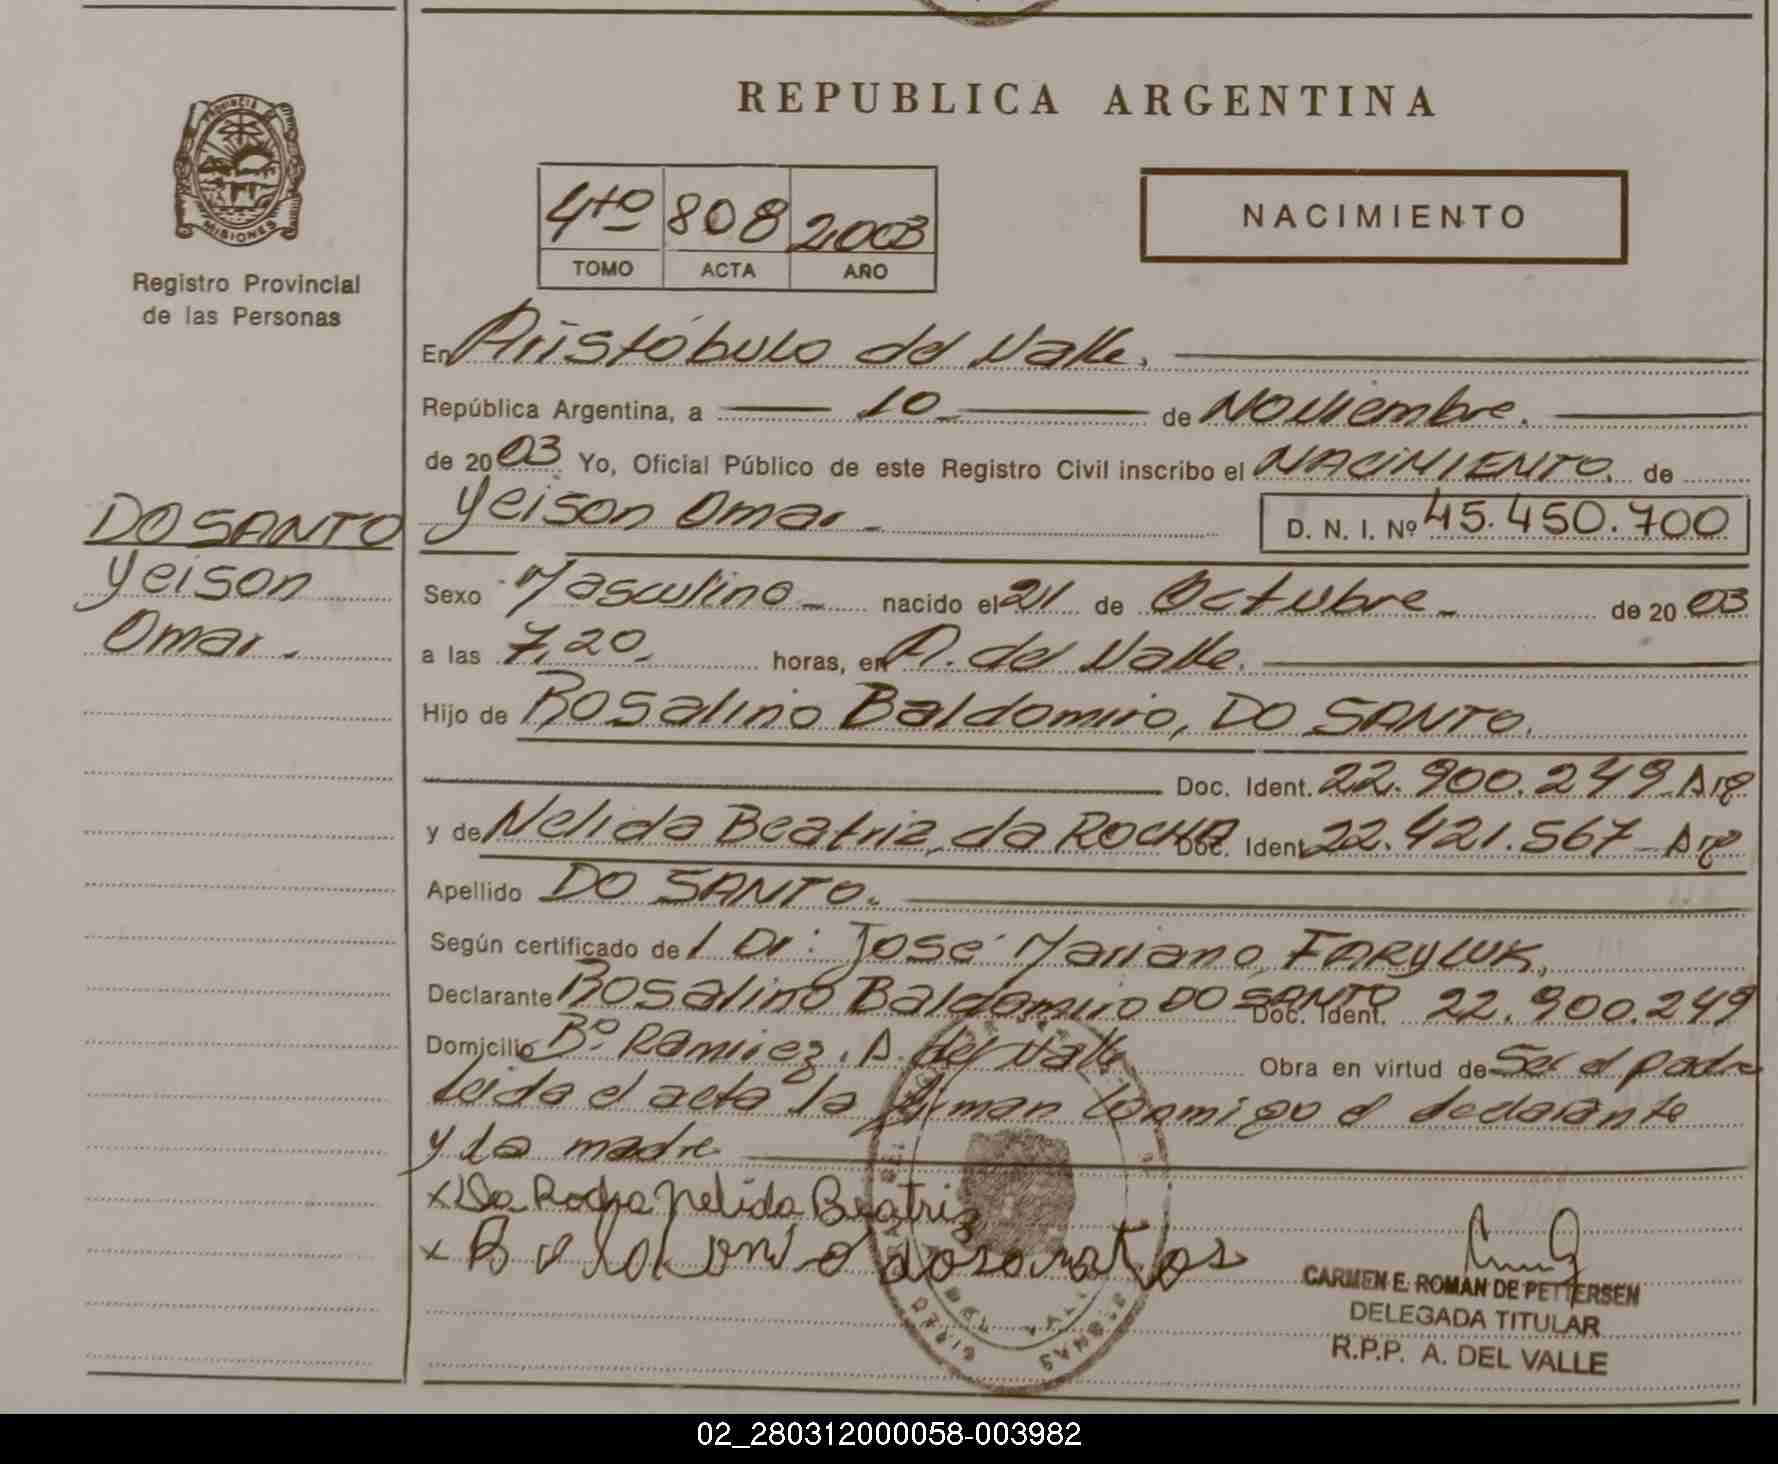 REPUBLICA ARGENTINA
PROVINCIA
MISIONES
Registro Provincial
de las Personas
4to 808 2003
TOMO ACTA AÑO
NACIMIENTO
En Aristóbulo del Valle.
República Argentina, a 10 de Noviembre.
de 2003 Yo, Oficial Público de este Registro Civil inscribo el NACIMIENTO. de
DO SANTO
Yeison
Omar.
Yeison Omar D. N. I. Nº 45.450.700
Sexo Masculino nacido el 21 de Octubre de 2003
a las 7,20 horas, en A. del Valle.
Hijo de Rosalino Baldomiro, DO SANTO.
Doc. Ident. 22.900.249 Arg
y de Nelida Beatriz, da ROCHA Doc. Ident 22.421.567 Arg
Apellido DO SANTO.
Según certificado de l Dr: José Mariano FARYLUK,
Declarante Rosalino Baldomiro DO SANTO Doc. Ident. 22.900.249
Domicilio Bº Ramirez, A. del Valle Obra en virtud de Ser el padre
Leida el acta la firman conmigo el declarante
y la madre
x Da Rocha Nelida Beatriz
x
CARMEN E. ROMAN DE PETTERSEN
DELEGADA TITULAR
R.P.P. A. DEL VALLE
02_280312000058-003982